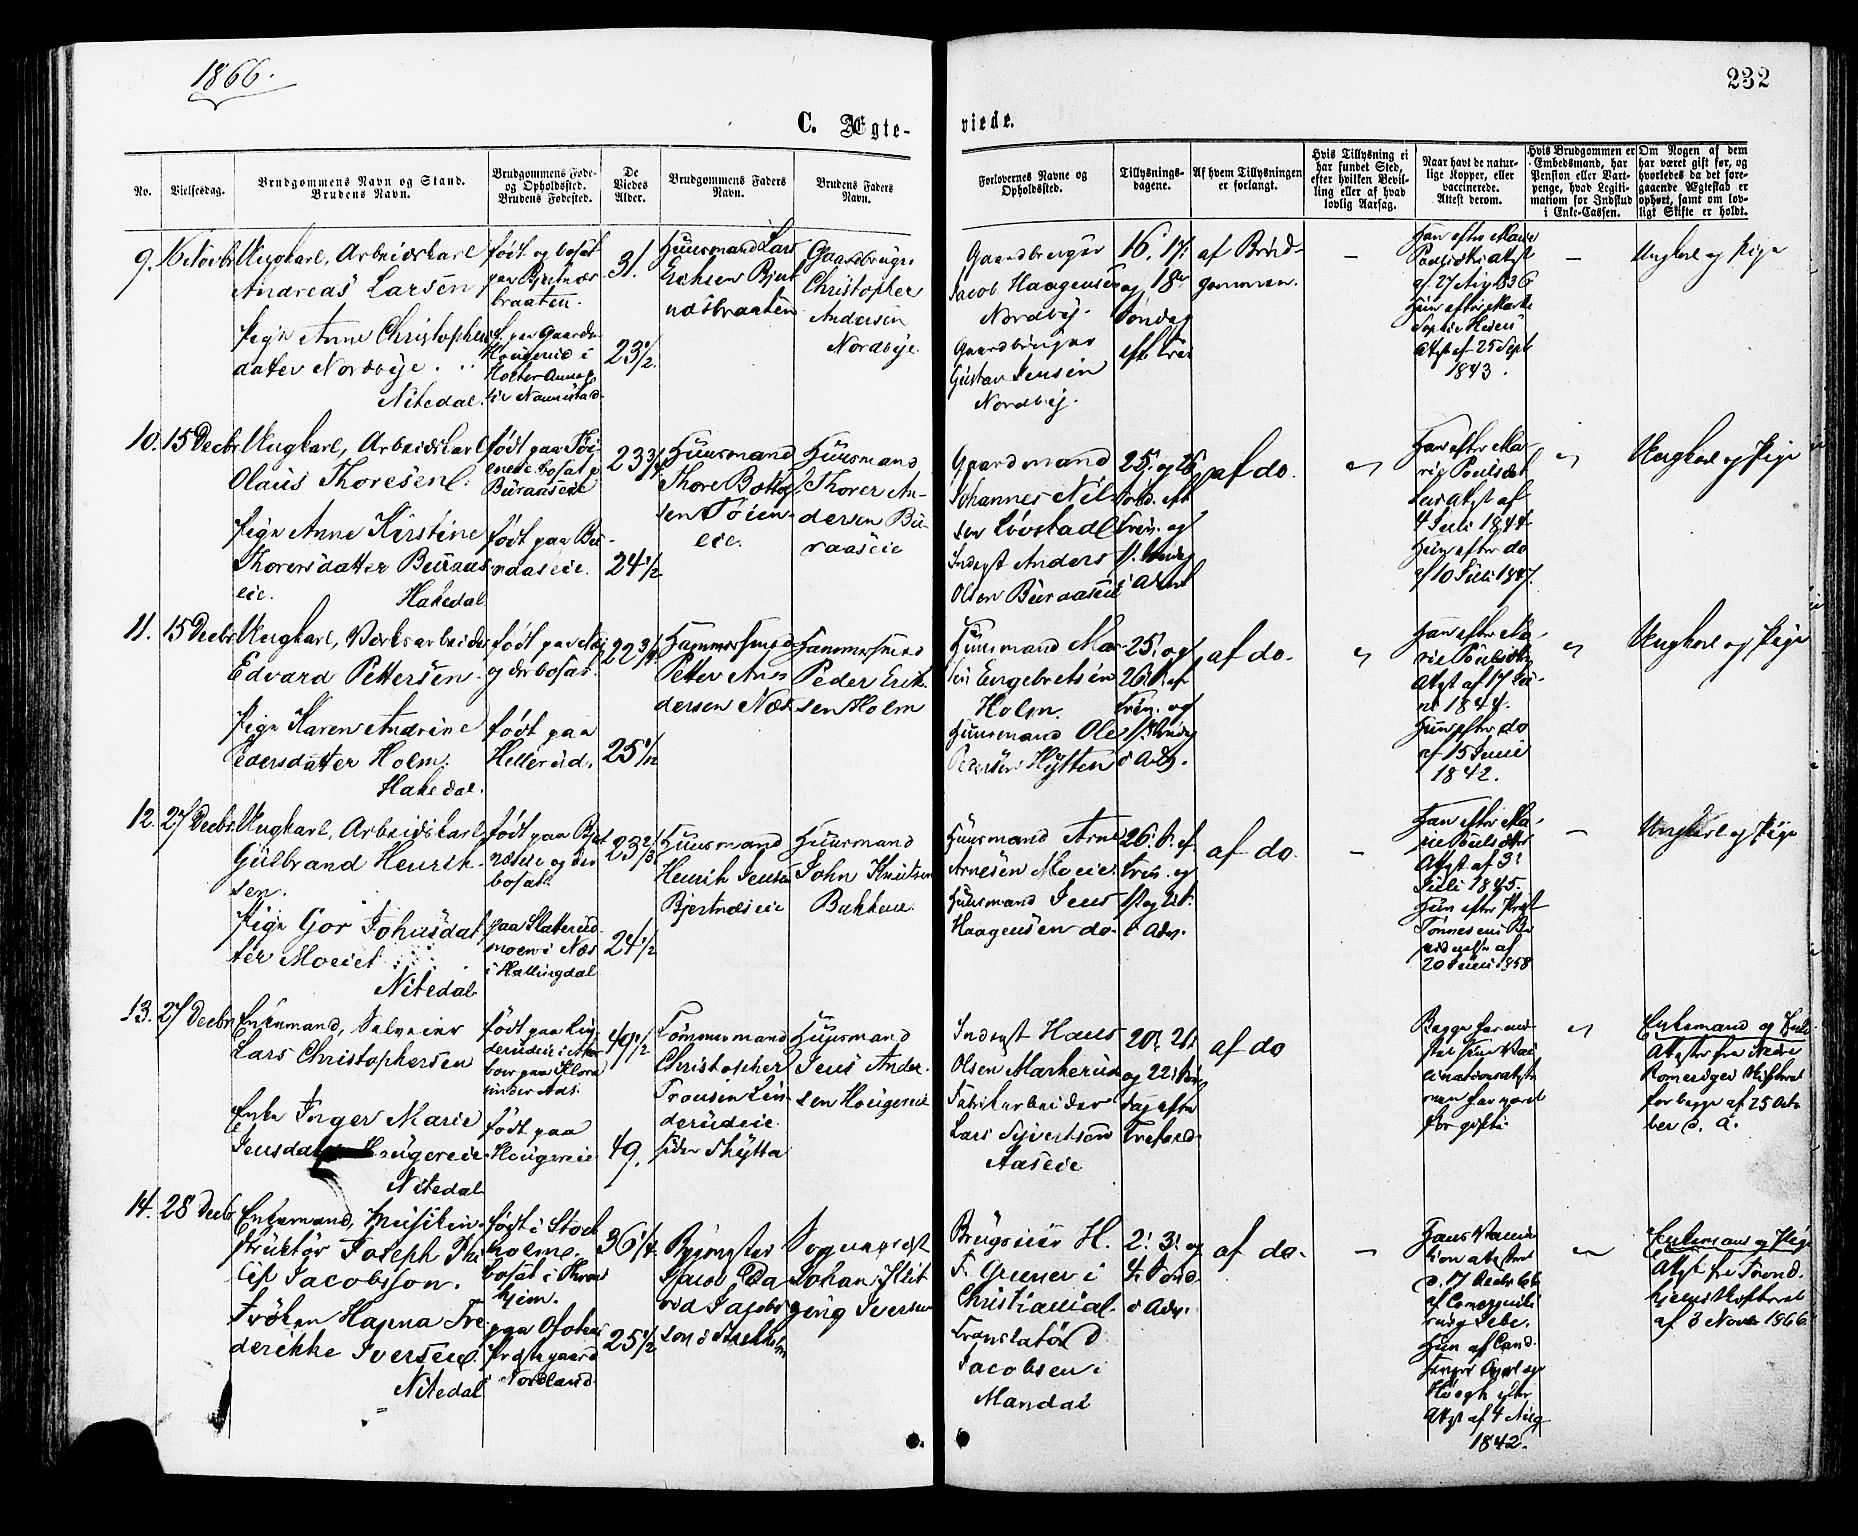 1866.
232
C. Ægte-
viede.
No.
Vielsesdag.
Brudgommens Navn og Stand.
Brudens Navn.
Brudgommens Føde-
og Opholdssted.
Brudens Fødested.
De
Viedes
Alder.
Brudgommens Faders
Navn.
Brudens Faders
Navn.
Forlovernes Navne og
Opholdssted.
Tillysnings-
dagene.
Af hvem Tillysningen
er forlangt.
Hvis Tillysning ei
har fundet Sted,
efter hvilken Bevil-
ling eller af hvad
lovlig Aarsag.
Naar havt de natur-
lige Kopper, eller
vaccinerede.
Attest derom.
Hvis Brudgommen er
Embedsmand, har
Pension eller Vart-
penge, hvad Legiti-
mation for Indskud
i Enke-Cassen.
Om Nogen af dem
har været gift før, og
hvorledes da det fore-
gaaende Ægteskab er
ophørt, samt om lov-
ligt Skifte er holdt.
9.
Ungkarl, Arbeidskarl
Andreas Larsen
Pige Anne Christophers
datter Nordbye.
Nitedal.
født og bosat
paa Bjertnæs
braaten.
31.
23 1/2.
Huusmand Lars
Eriksen Bjert
næsbraaten
Gaardbruger
Christopher
Andersen
Nordbye.
Gaardbruger
Jacob Haagensen
Nordby.
Gaardbruger
Gustav Jensen
Nordby.
16. 17.
og 18de
Søndag
eft. Trin
af Brud-
gommen.
Han efter Marie
Poulsdtrs Attest
af 27 Aug 1836
Hun efter
Attest af 25 Sept
1843.
Ungkarl og Pige
10.
15 Decbr
Ungkarl, Arbeidskarl
Olaus Thoresen.
Pige Anne Kirstine
Thorersdatter Buraas
eie.
Hakedal
født paa Tøi
eneie bosat p
Buraaseie
født paa Bu-
raaseie.
23 3/4
24 1/2
Huusmand
Thore
sen Tøien-
eie.
Huusmand
Thorer An-
dersen Bu-
raaseie
Gaardmand
Johannes Nil-
sen Løvstad
Inderst Anders
Olsen Buraaseie
25. og 26.
Sønd. eft
Trin. og
1. Søndag
i Advt
af do.
Han efter Ma-
rie Poulsdat-
ters Attest af
4 Juli 1844.
Hun efter do
af 10 Juli 1847.
Ungkarl og Pige
11.
15 Decbr
Ungkarl, Værksarbeider
Edvard Pettersen.
Pige Karen Andrine
Pedersdatter Holm.
Hakedal.
født paa
og der bosat.
født paa
Hellerud.
22 3/4
25 1/12
Hammersmed
Petter An-
dersen Næs
Hammersmed
Peder Erik-
sen Holm
Huusmand Mar-
tin Engebretsen
Holm.
Huusmand Ole
Pedersen Hytten
25. og
26. S. ef
Trin. og
1. Søndag
i Adv.
af do.
Han efter Ma-
rie Poulsdtrs
Attest af 17 Ju-
ni 1844.
Hun efter do
af 15 Juni
1842.
Ungkarl og Pige
12.
27 Decbr.
Ungkarl, Arbeidskarl
Gulbrand Henrik-
sen.
Pige Gor Johnsdat
ter Moeiet
Nitedal
født paa Bjert
næseie og der
bosat.
paa Slatterud
moen i Næs
i Hallingdal
23 2/3
24 1/2
Huusmand
Henrik Jensen
Bjertnæseie
Huusmand
John Knutsen
Bakkene.
Huusmand Arne
Arnesen Moeie.
Huusmand Jens
Haagensen do.
26. S. ef
Trin. og
1st og 2t
i Adv.
af do.
Han efter Ma-
rie Poulsdtrs
Attest af 3.
Juli 1845.
Hun efter Præst
Tønnesens Be
vidnelse af
20 Juni 1858
Ungkarl og Pige
13.
27 Decbr
Enkemand, Selveier
Lars Christophersen
Enke Inger Marie
Jensdatter Haugereie
Nitedal
født paa Lin
derudeie i Aker
boer paa Flora
under Aas.
født paa
Haugereie
49 1/2
49.
Tømmermand
Christopher
Tronsen Lin-
derudeie.
siden Skytta
Huusmand
Jens Ander-
sen Haugereie
Inderst Hans
Olsen Markerud
Fabrikarbeider
Lars Syvertsen
Aaseie
20. 21.
og 22. Søn
dag efter
Trefold.
af do
Begge har
før gifte.
Enkemand og Enke
Attester fra Nedre
Romeriges Skifteret
for begge af 25 Octo
ber d. A.
14.
28 Decbr
Enkemand, Musikin-
struktør Joseph Phi
lip Jacobsson.
Frøken Hanna Fre
derikke Iversen.
Nitedal
født i Stock
holm.
bosat i Thron
hjem.
paa Ofoten
Præstegaard
i Nordland.
36 1/4
25 1/2
Bygmester
Jacob Da
vid Jacobs
son i Stockholm
Sogneprest
Johan Hit
zing Iversen
Brugseier H.
F. Gruner i
Christiania.
Translatør D
Jacobsen i
Mandal
2. 3. og
4. Sønd.
i Adv.
af do.
Hans Vaccina
tion attesteret
d. 17 Decbr 66
Hun af Cand.
Høegh efter
Attest af 4 Aug
1842.
Enkemand og Pige
Attest fra Trond.
hjems Skifteret
af 3 Novbr 1866